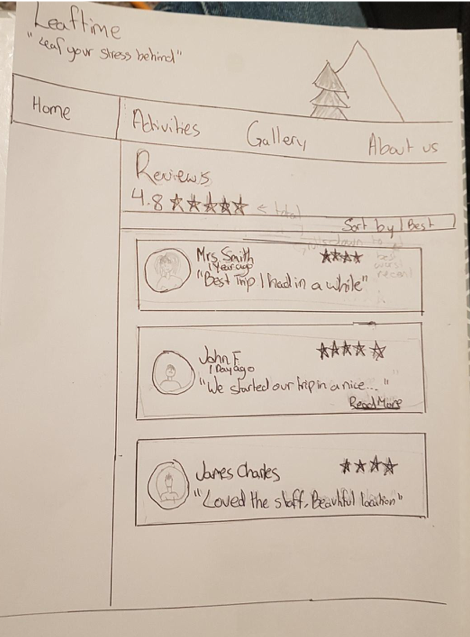 Leaftime
"Leaf your stress behind"
Home
Activities
Gallery
About us
Reviews
4.8
← total
Sort by | Best
Mrs. Smith
1 Year ago
"Best Trip I had in a while"
best
worst
recent
John F.
1 Day ago
"We started our trip in a nice..."
Read More
James Charles
"Loved the staff. Beautiful location"